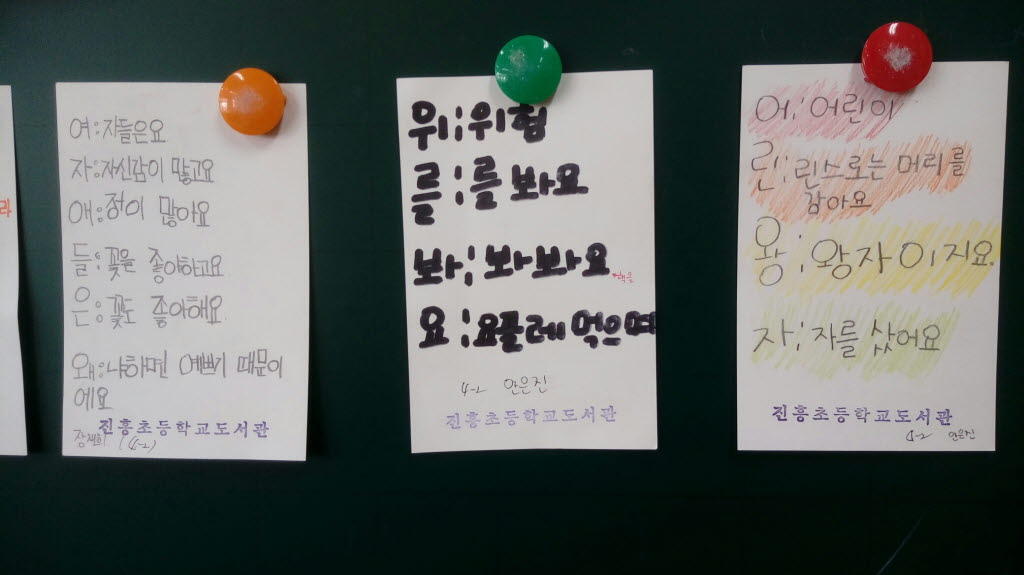 라
여:자들은요
자:자신감이 많고요
애:정이 많아요
들:꽃을 좋아하고요
은:꽃도 좋아해요.
왜:냐하면 예쁘기 때문이
에요
진흥초등학교도서관
(4-2)
위;위험
를;를 봐요
봐;봐봐요
요;요플레먹으며
4-2 안은진
진흥초등학교도서관
어;어린이
린;린스로는 머리를
감아요
왕;왕자이지요.
자;자를 샀어요
진흥초등학교도서관
4-2 안은진